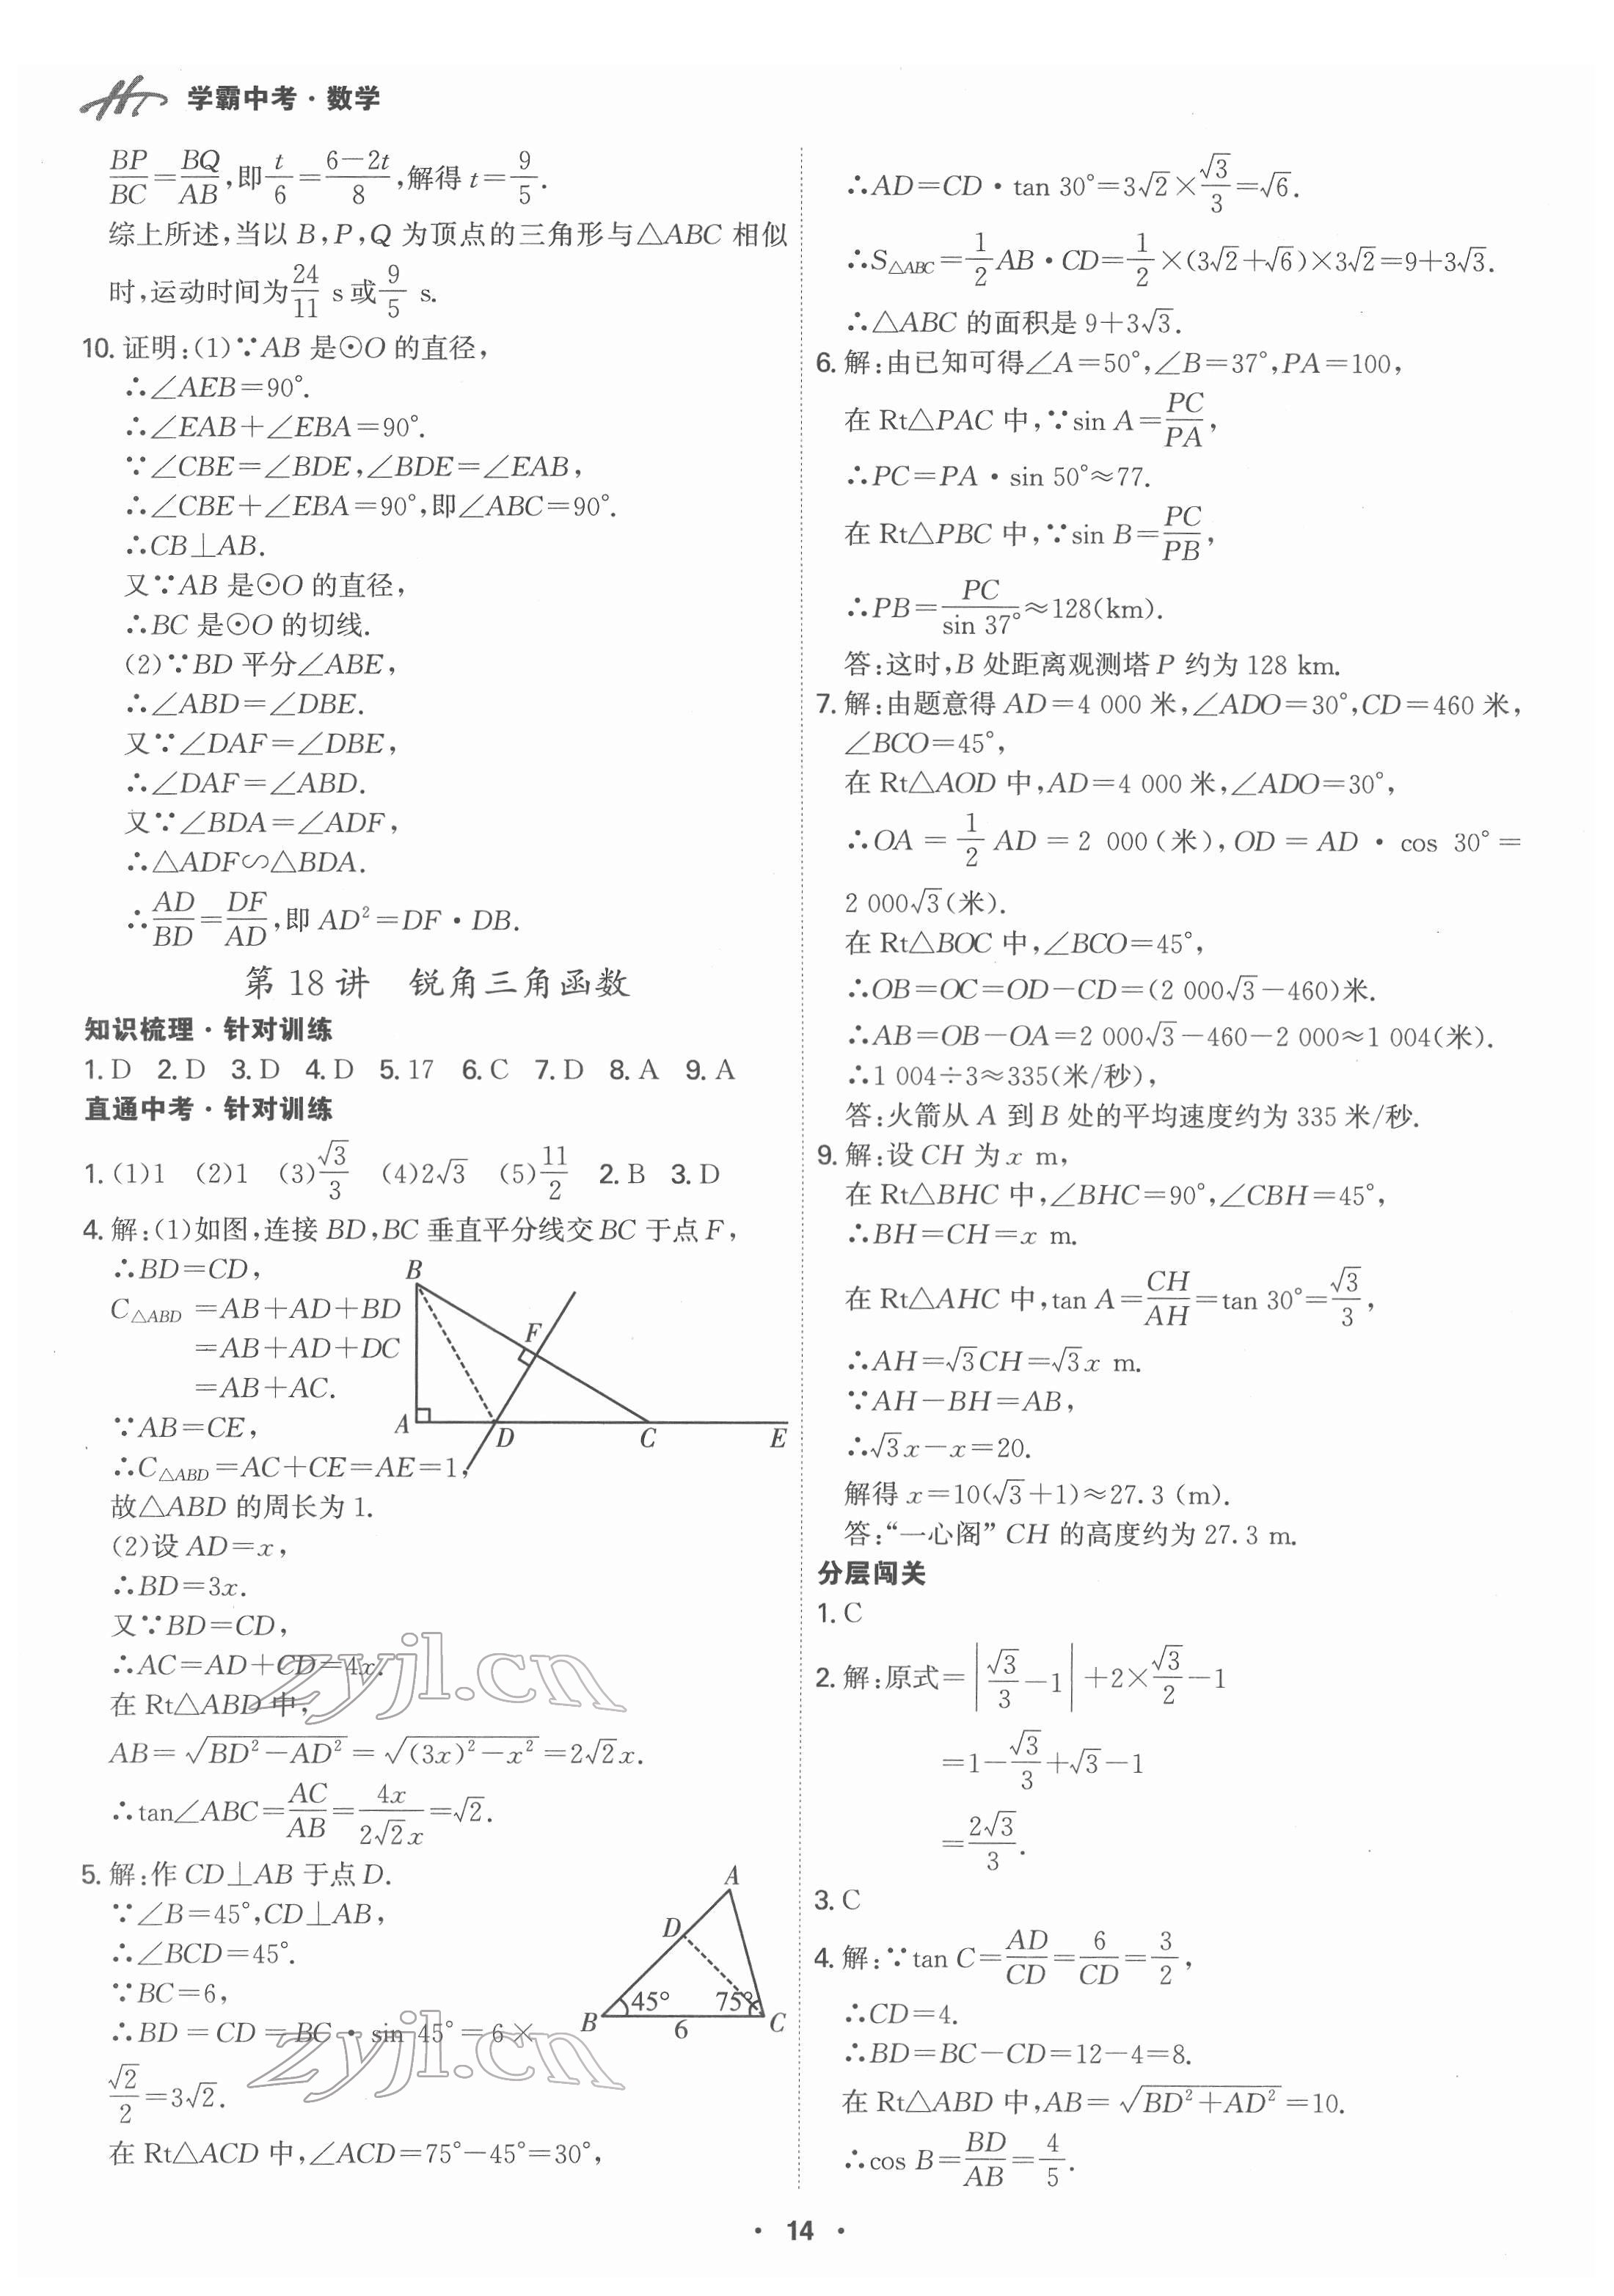 学霸中考·数学
BP/BC=BQ/AB,即t/6=(6-2t)/8,解得t=9/5.
综上所述,当以B,P,Q为顶点的三角形与△ABC相似
时,运动时间为24/11 s或9/5 s.
10. 证明:(1)∵AB是⊙O的直径,
∴∠AEB=90°.
∴∠EAB+∠EBA=90°.
∵∠CBE=∠BDE,∠BDE=∠EAB,
∴∠CBE+∠EBA=90°,即∠ABC=90°.
∴CB⊥AB.
又∵AB是⊙O的直径,
∴BC是⊙O的切线.
(2)∵BD平分∠ABE,
∴∠ABD=∠DBE.
又∵∠DAF=∠DBE,
∴∠DAF=∠ABD.
又∵∠BDA=∠ADF,
∴△ADF∽△BDA.
∴AD/BD=DF/AD,即AD²=DF·DB.
第18讲 锐角三角函数
知识梳理·针对训练
1. D 2. D 3. D 4. D 5. 17 6. C 7. D 8. A 9. A
直通中考·针对训练
1. (1)1 (2)1 (3)√3/3 (4)2√3 (5)11/2 2. B 3. D
4. 解:(1)如图,连接BD,BC垂直平分线交BC于点F,
∴BD=CD,
C△ABD=AB+AD+BD
=AB+AD+DC
=AB+AC.
∵AB=CE,
∴C△ABD=AC+CE=AE=1,
B
F
A
D
C
E
故△ABD的周长为1.
(2)设AD=x,
∴BD=3x.
又∵BD=CD,
∴AC=AD+CD=4x.
在Rt△ABD中,
AB=√(BD²-AD²)=√((3x)²-x²)=2√2x.
∴tan∠ABC=AC/AB=4x/(2√2x)=√2.
5. 解:作CD⊥AB于点D.
∵∠B=45°,CD⊥AB,
∴∠BCD=45°.
∵BC=6,
∴BD=CD=BC·sin 45°=6×
√2/2=3√2.
A
D
B
45°
75°
C
6
在Rt△ACD中,∠ACD=75°-45°=30°,
zyjl.cn
zyjl.cn
∴AD=CD·tan 30°=3√2×√3/3=√6.
∴S△ABC=1/2AB·CD=1/2×(3√2+√6)×3√2=9+3√3.
∴△ABC的面积是9+3√3.
6. 解:由已知可得∠A=50°,∠B=37°,PA=100,
在Rt△PAC中,∵sin A=PC/PA,
∴PC=PA·sin 50°≈77.
在Rt△PBC中,∵sin B=PC/PB,
∴PB=PC/sin 37°≈128(km).
答:这时,B处距离观测塔P约为128 km.
7. 解:由题意得AD=4 000米,∠ADO=30°,CD=460米,
∠BCO=45°,
在Rt△AOD中,AD=4 000米,∠ADO=30°,
∴OA=1/2AD=2 000(米),OD=AD·cos 30°=
2 000√3(米).
在Rt△BOC中,∠BCO=45°,
∴OB=OC=OD-CD=(2 000√3-460)米.
∴AB=OB-OA=2 000√3-460-2 000≈1 004(米).
∴1 004÷3≈335(米/秒),
答:火箭从A到B处的平均速度约为335米/秒.
9. 解:设CH为x m,
在Rt△BHC中,∠BHC=90°,∠CBH=45°,
∴BH=CH=x m.
在Rt△AHC中,tan A=CH/AH=tan 30°=√3/3,
∴AH=√3CH=√3x m.
∵AH-BH=AB,
∴√3x-x=20.
解得x=10(√3+1)≈27.3 (m).
答:“一心阁”CH的高度约为27.3 m.
分层闯关
1. C
2. 解:原式=|√3/3-1|+2×√3/2-1
=1-√3/3+√3-1
=2√3/3.
3. C
4. 解:∵tan C=AD/CD=6/CD=3/2,
∴CD=4.
∴BD=BC-CD=12-4=8.
在Rt△ABD中,AB=√(BD²+AD²)=10.
∴cos B=BD/AB=4/5.
·14·